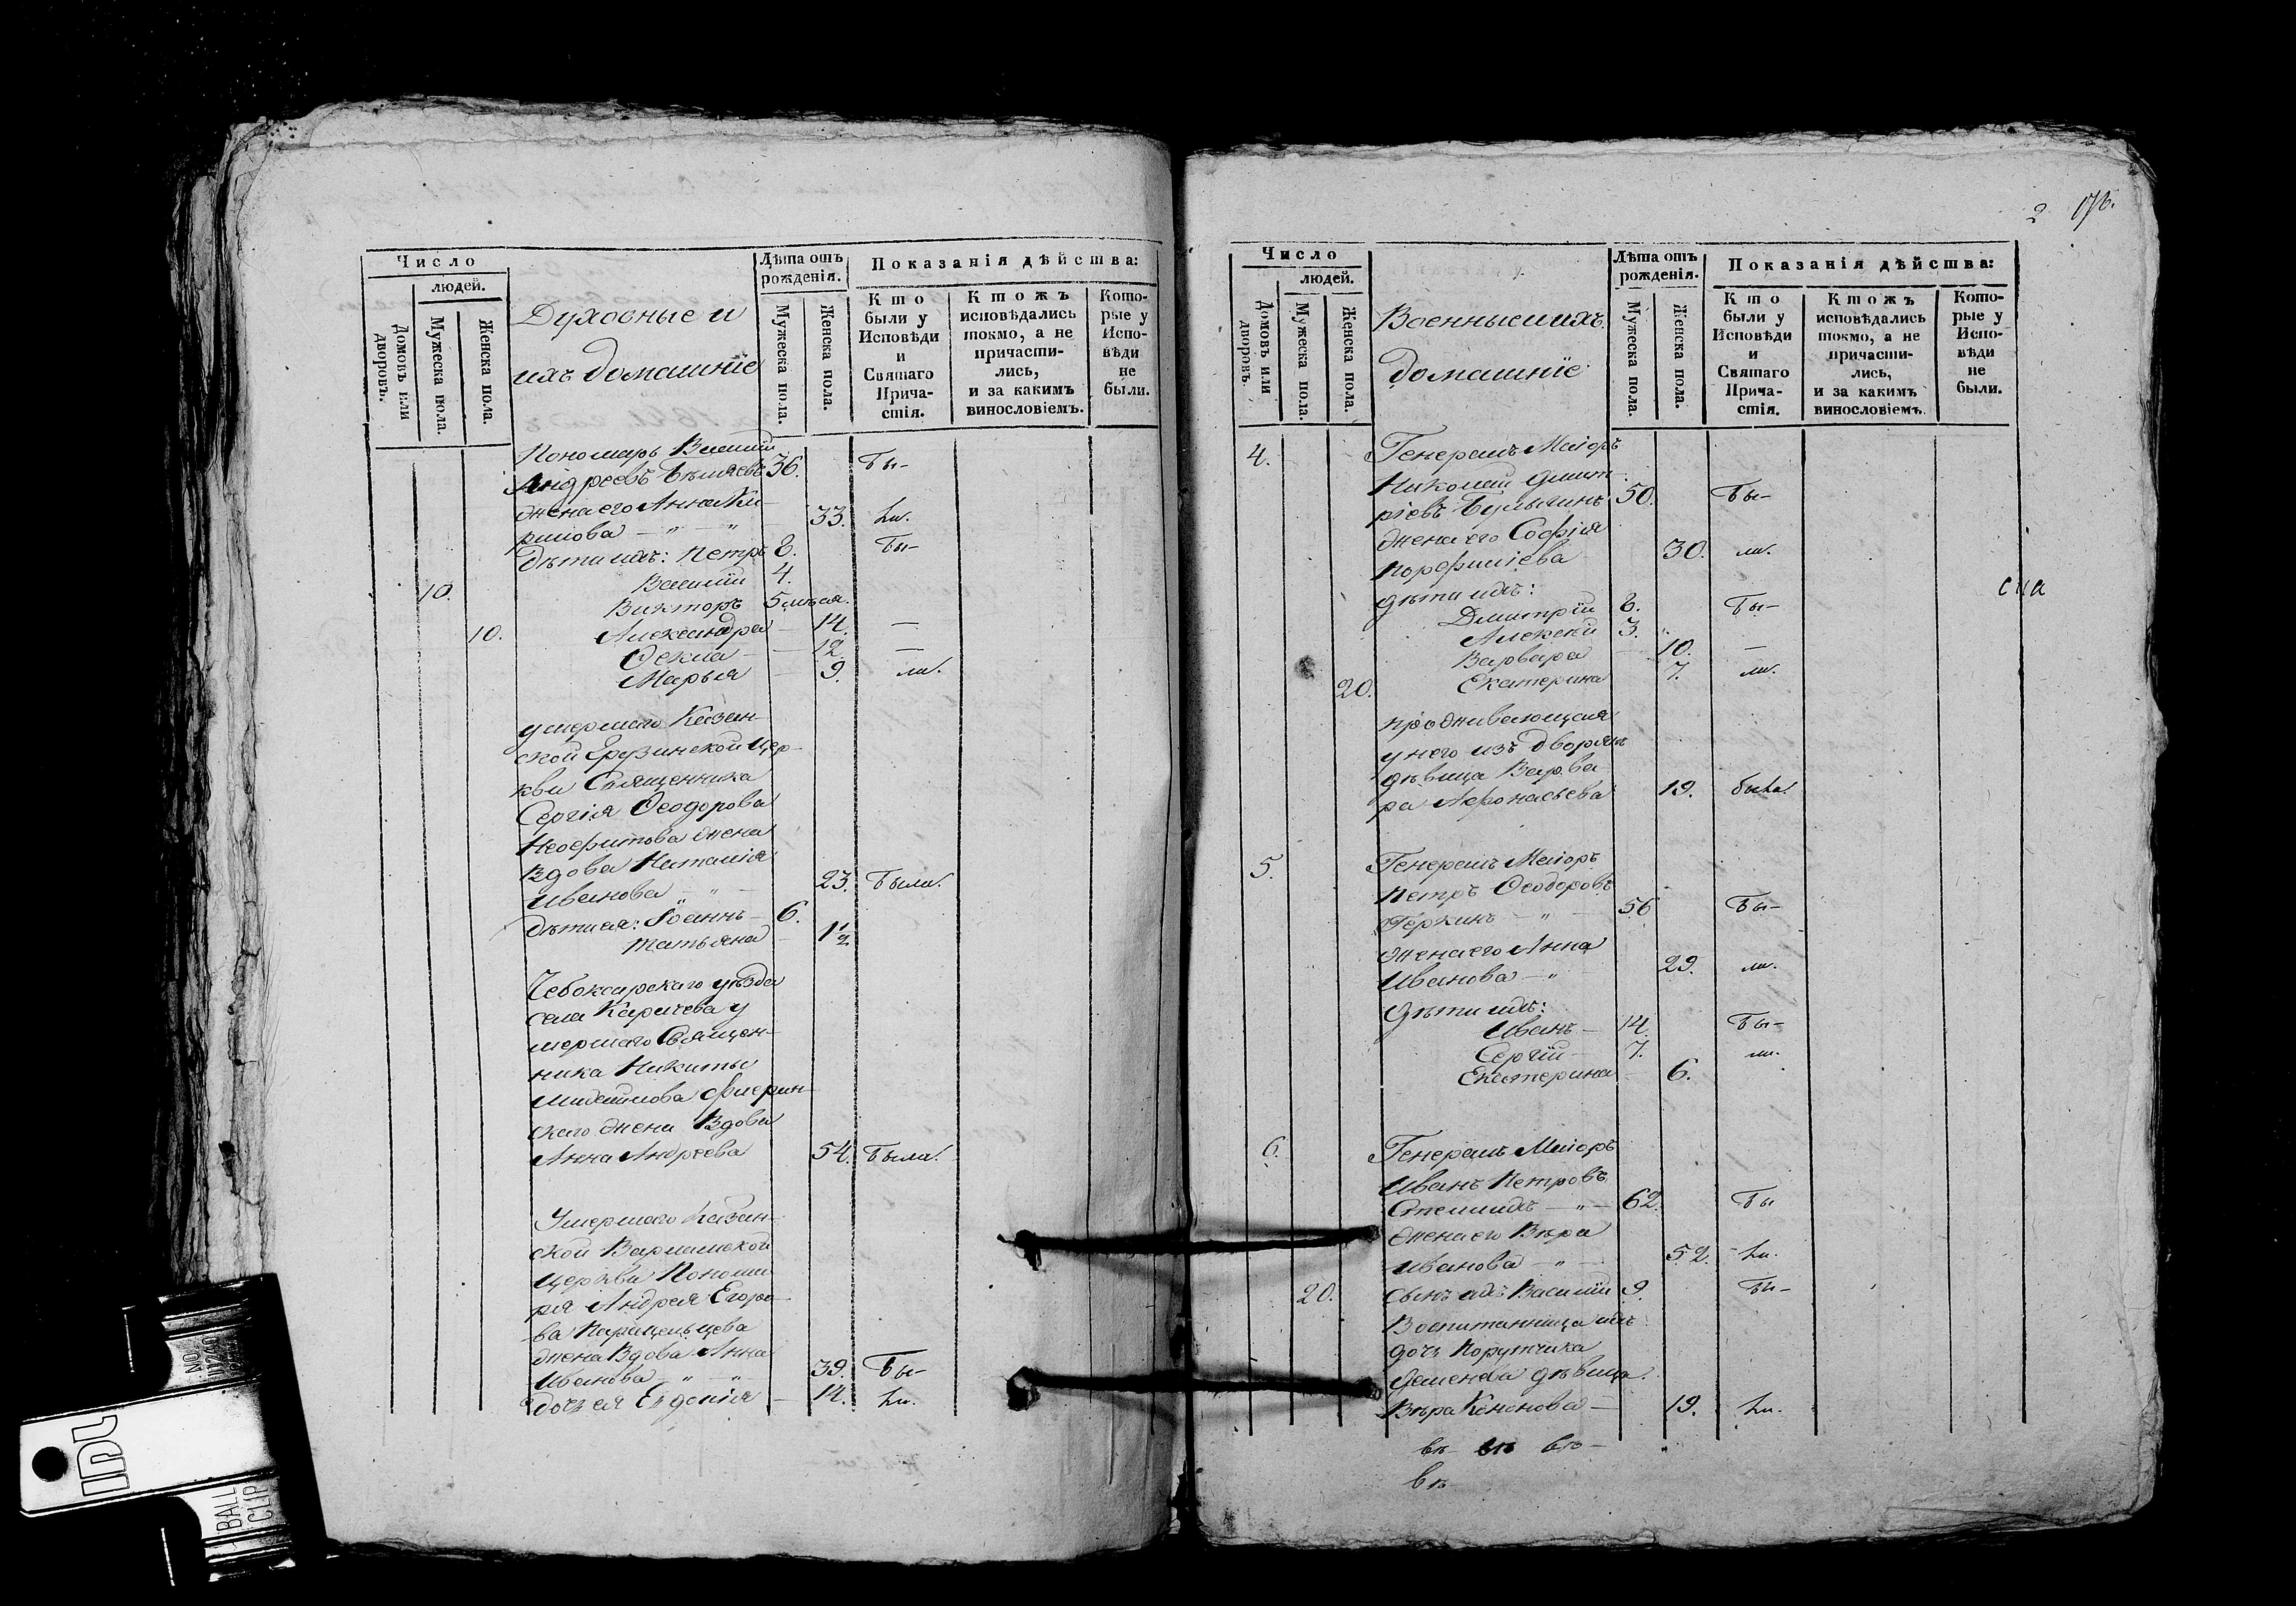 Число
людей.
Домовъ или дворовъ.
Мужеска пола.
Женска пола.
Духовные и
ихъ домашніе
Лѣта отъ
рожденія.
Мужеска пола.
Женска пола.
Показанія дѣйства:
Кто
были у
Исповѣди
и
Святаго
Прича-
стія.
Ктожъ
исповѣдались
токмо, а не
причасти-
лись,
и за какимъ
винословіемъ.
Кото-
рые у
Испо-
вѣди
не
были.
Пономарь Василій
Андреевъ Бѣляевъ 36. Бы-
жена его Анна Ки-
рилова — " — " 33. ли.
дѣти ихъ: Петръ 8. Бы-
Василій 4.
10. Викторъ 5 мѣсяц.
10. Александра — 14. —
Ѳекла — 12. —
Марья — 9. ли.
умершаго Казан-
ской Грузинской цер-
кви Священника
Сергія Ѳеодорова
Неофитова жена
Вдова Наталія
Иванова — " — 23. Была.
дѣти ея: Іоаннъ — 6.
Татьяна — 1 1/2
Чебоксарскаго уѣзда
села Карачева у
мершаго Священ-
ника Никиты
Михайлова
скаго жена Вдова
Анна Андреева 54. Была.
Умершаго Казан-
ской Варламской
церкви Понома
ря Андрея Егоро-
ва Парицынцева
жена Вдова Анна
Иванова " — " 39. Бы-
дочь ея Евдокія — 14. ли.
2
Число
людей.
Домовъ или дворовъ.
Мужеска пола.
Женска пола.
Военные и ихъ
домашніе
Лѣта отъ
рожденія.
Мужеска пола.
Женска пола.
Показанія дѣйства:
Кто
были у
Исповѣди
и
Святаго
Прича-
стія.
Ктожъ
исповѣдались
токмо, а не
причасти-
лись,
и за какимъ
винословіемъ.
Кото-
рые у
Испо-
вѣди
не
были.
4. Генералъ Маіоръ
Николай Дмит-
ріевъ Булыгинъ 50. Бы-
жена его Софія
Порфиріева 30. ли.
дѣти ихъ:
Дмитрій 8. Бы-
Алексѣй 3.
Варвара — 10. —
20. Екатерина 7. ли.
проживающая
у него изъ дворянъ
дѣвица Варва
ра Афонасьева 19. была.
5. Генералъ Маіоръ
Петръ Ѳеодоровъ
Геркинъ — " — 56 Бы-
жена его Анна
Иванова — " 29. ли.
дѣти ихъ:
Иванъ — 14. Бы-
Сергій — 7. ли.
Екатерина — 6.
6. Генералъ Маіоръ
Иванъ Петровъ
— " — 62. Бы
жена его Вѣра
Иванова — " — 52. ли.
20. сынъ ихъ Василій 9. Бы-
Воспитанница ихъ
дочь Порутчика
Семенова дѣвица
Вѣра — 19. ли.